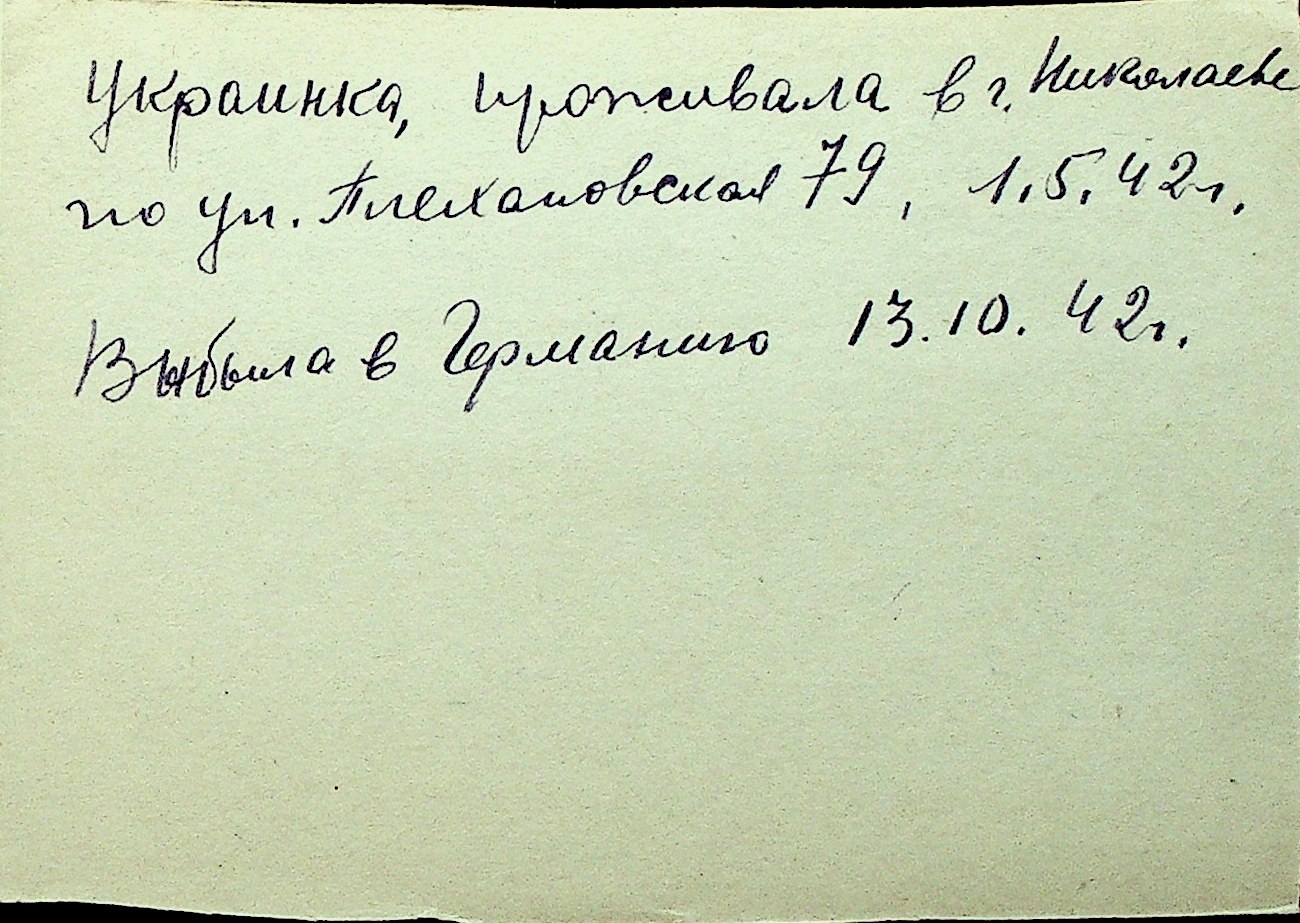 Украинка, проживала в г. Николаеве
по ул. Плехановская 79, 1.5.42г.
Выбыла в Германию 13.10.42г.